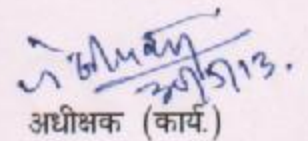 30/5/13.
अधीक्षक (कार्य.)